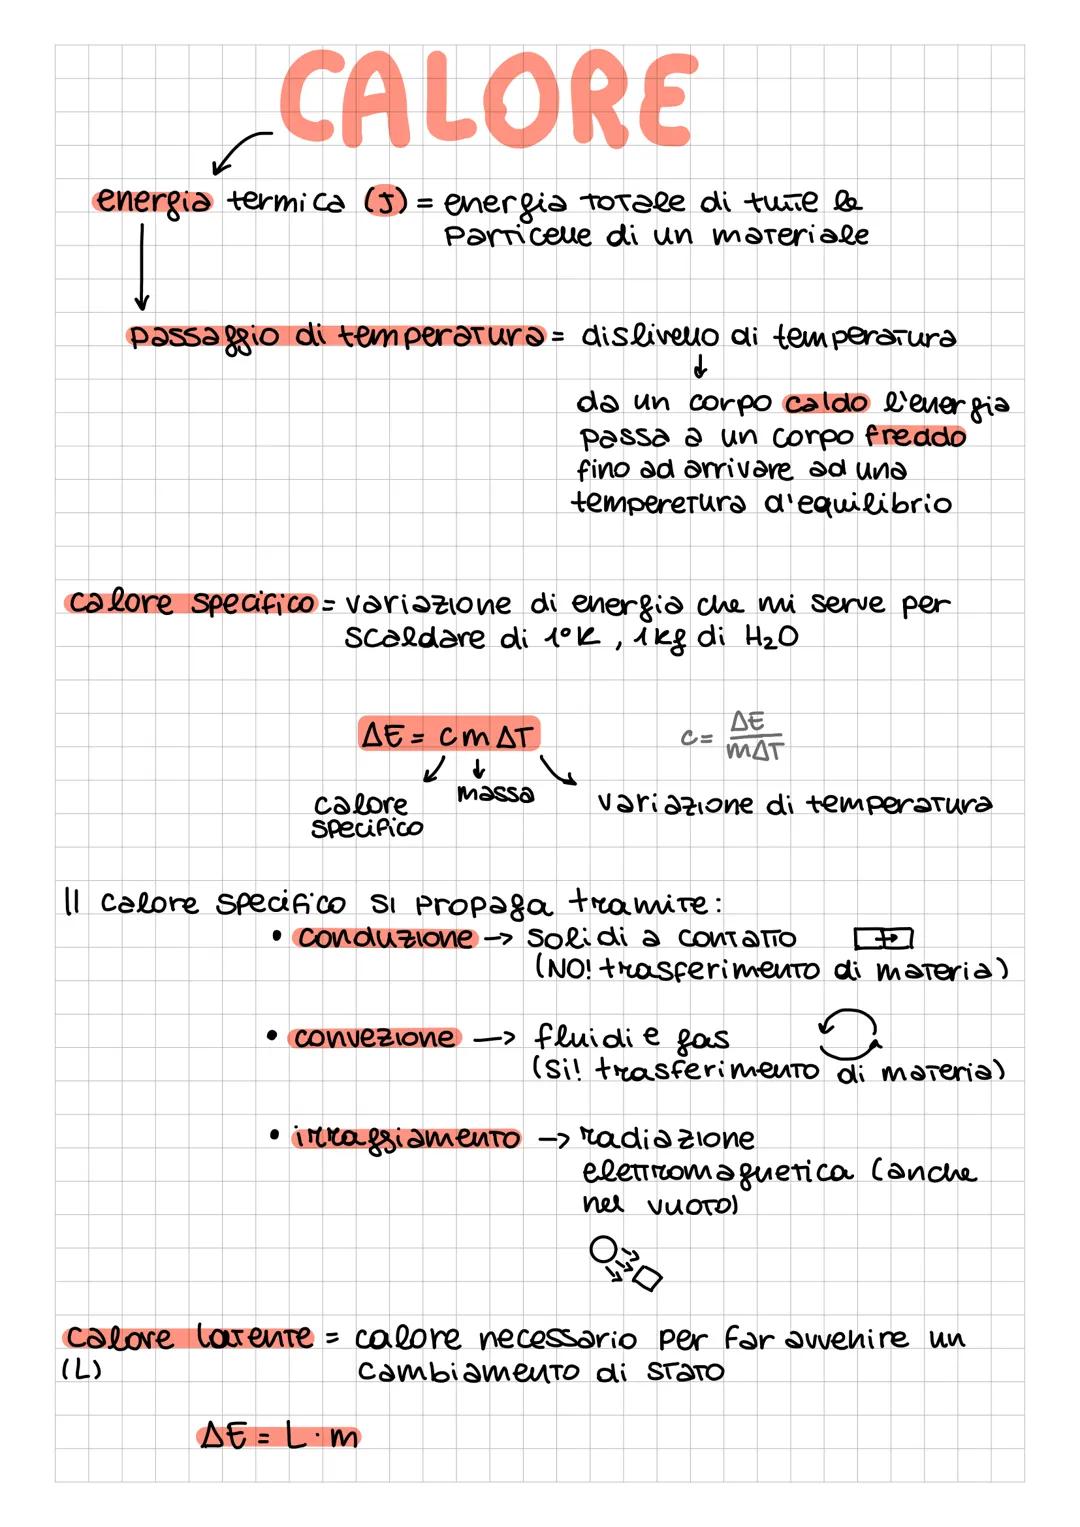 CALORE
energia termica (J) = energia totale di tutte le
particelle di un materiale
passaggio di temperatura = dislivello di temperatura
da un corpo caldo l'energia
passa a un corpo freddo
fino ad arrivare ad una
temperetura d'equilibrio
calore specifico = variazione di energia che mi serve per
scaldare di 1°K, 1kg di H₂O
ΔE = cmΔT
c = ΔE/mΔT
calore specifico
massa
variazione di temperatura
Il calore specifico si propaga tramite:
• conduzione -> solidi a contatto
(NO! trasferimento di materia)
• convezione -> fluidi e gas
(Si! trasferimento di materia)
• irraggiamento -> radiazione
elettromagnetica (anche
nel vuoto)
calore latente = calore necessario per far avvenire un
(L) cambiamento di stato
ΔE = L·m